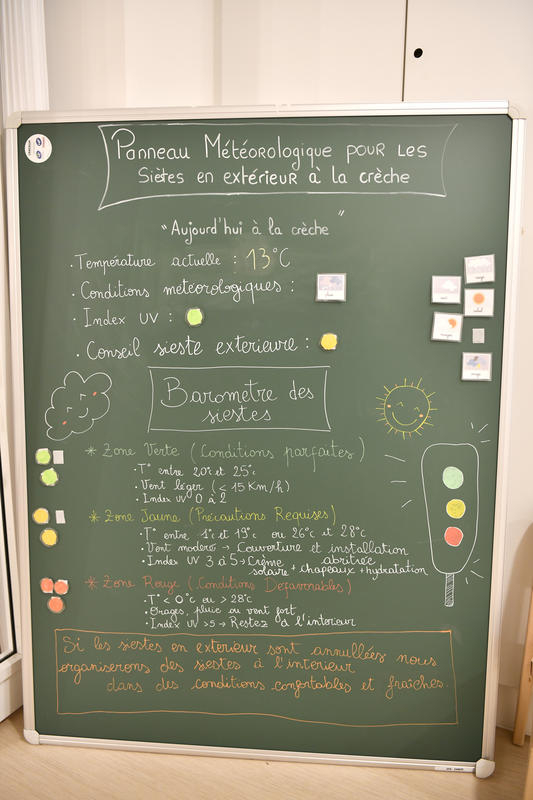 Panneau Météorologique pour les
Siètes en extérieur à la crèche
"Aujourd'hui à la crèche"
. Température actuelle : 13°C
. Conditions météorologiques :
. Index UV :
. Conseil sieste exterieure :
Barometre des
siestes
* Zone Verte (Conditions parfaites)
. T° entre 20°c et 25°c
. Vent léger (< 15 Km/h)
. Index UV 0 à 2
* Zone Jaune (Précautions Requises)
. T° entre 1°c et 19°c ou 26°c et 28°c
. Vent modéré → Couverture et installation abritrée
. Index UV 3 à 5 → Crème solaire + chapeaux + hydratation
* Zone Rouge (Conditions Défavorables)
. T° < 0°c ou > 28°c
. Orages, pluie ou vent fort
. Index UV >5 → Restez à l'interieur
Si les siestes en exterieur sont annullées nous
organiserons des siestes à l'interieur
dans des conditions confortables et fraîches.